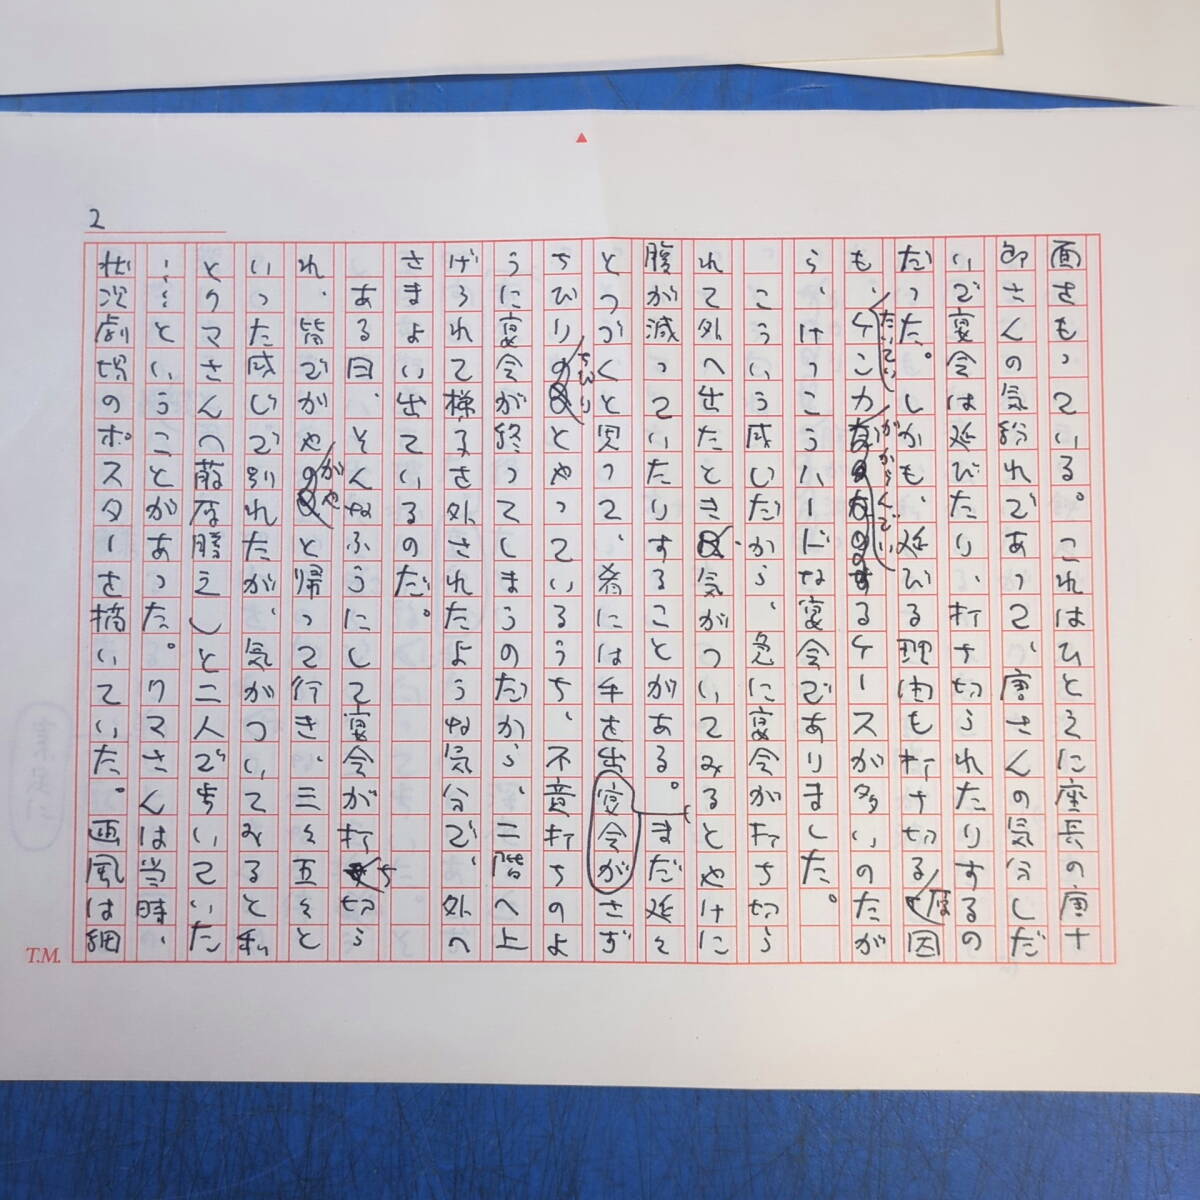 2
面をもっている。これはひとえに座長の唐十
郎さんの気紛れであって、唐さんの気分しだ
いで宴会は延びたり、打ち切られたりするの
だった。しかも、延びる理由も打ち切る原因
も、たいていケンカがからんでいるケースが多いのだが
ら、けっこうハードな宴会でありました。
こういう感じだから、急に宴会が打ち切ら
れて外へ出たとき、気がついてみるとやけに
腹が減っていたりすることがある。まだ延々
とつづくと思って、肴には手を出さず
宴会が
ちびりちびりとやっているうち、不意打ちのよ
うに宴会が終ってしまうのだから、二階へ上
げられて梯子を外されたような気分で、外へ
さまよい出ているのだ。
ある日、そんなふうにして宴会が打ち切ら
れ、皆でがやがやと帰って行き、三々五々と
いった感じで別れたが、気がついてみると私
とクマさん（篠原勝之）と二人で歩いていた
……ということがあった。クマさんは当時、
状況劇場のポスターを描いていた。画風は細
T.M.